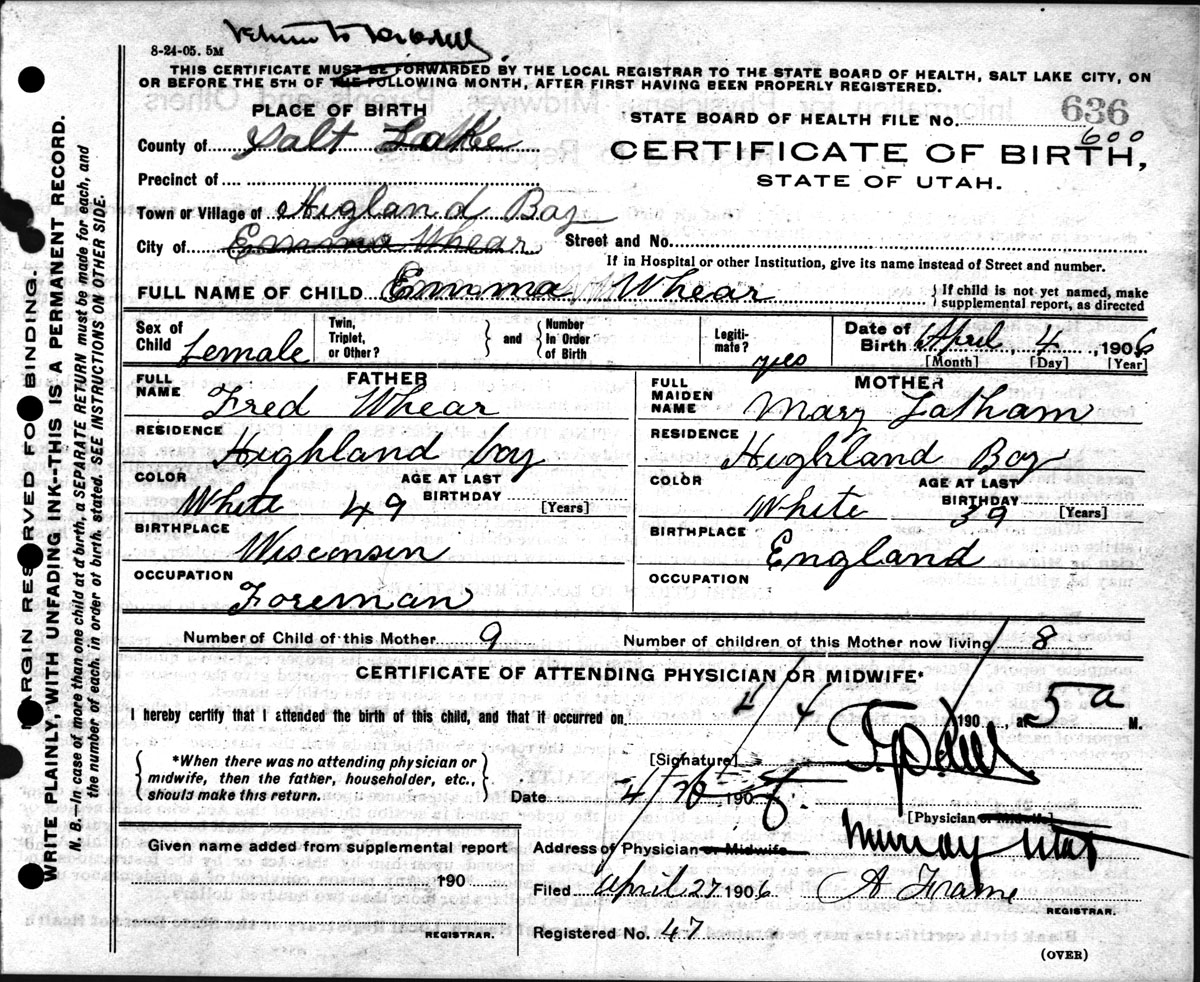 8-24-05. 5M
Return to
THIS CERTIFICATE MUST BE FORWARDED BY THE LOCAL REGISTRAR TO THE STATE BOARD OF HEALTH, SALT LAKE CITY, ON
OR BEFORE THE 5TH OF THE FOLLOWING MONTH, AFTER FIRST HAVING BEEN PROPERLY REGISTERED.
PLACE OF BIRTH
County of Salt Lake
Precinct of
Town or Village of Higland Boy
City of Emma Whear
636
STATE BOARD OF HEALTH FILE No. 600
CERTIFICATE OF BIRTH,
STATE OF UTAH.
Street and No.
If in Hospital or other Institution, give its name instead of Street and number.
FULL NAME OF CHILD Emma Whear
If child is not yet named, make
supplemental report, as directed
Sex of
Child Female
Twin,
Triplet,
or Other?
and
Number
In Order
of Birth
Legiti-
mate? yes
Date of
Birth April 4, 1906
[Month] [Day] [Year]
FATHER
FULL
NAME Fred Whear
RESIDENCE
Highland boy
COLOR
White
AGE AT LAST
BIRTHDAY
49 [Years]
BIRTHPLACE
Wisconsin
OCCUPATION
Foreman
MOTHER
FULL
MAIDEN
NAME Mary Latham
RESIDENCE
Highland Boy
COLOR
White
AGE AT LAST
BIRTHDAY
39 [Years]
BIRTHPLACE
England
OCCUPATION
Number of Child of this Mother 9
Number of children of this Mother now living 8
CERTIFICATE OF ATTENDING PHYSICIAN OR MIDWIFE*
I hereby certify that I attended the birth of this child, and that it occurred on 4/4 190 , at 5 a M.
*When there was no attending physician or
midwife, then the father, householder, etc.,
should make this return.
[Signature]
Date 4/ 190
[Physician or Midwife]
Address of Physician or Midwife Murray Utah
Given name added from supplemental report
190
REGISTRAR.
Filed April 27 1906 A Frame
REGISTRAR.
Registered No. 47
(OVER)
MARGIN RESERVED FOR BINDING.
WRITE PLAINLY, WITH UNFADING INK—THIS IS A PERMANENT RECORD.
N. B.—In case of more than one child at a birth, a SEPARATE RETURN must be made for each, and
the number of each, in order of birth, stated. SEE INSTRUCTIONS ON OTHER SIDE.